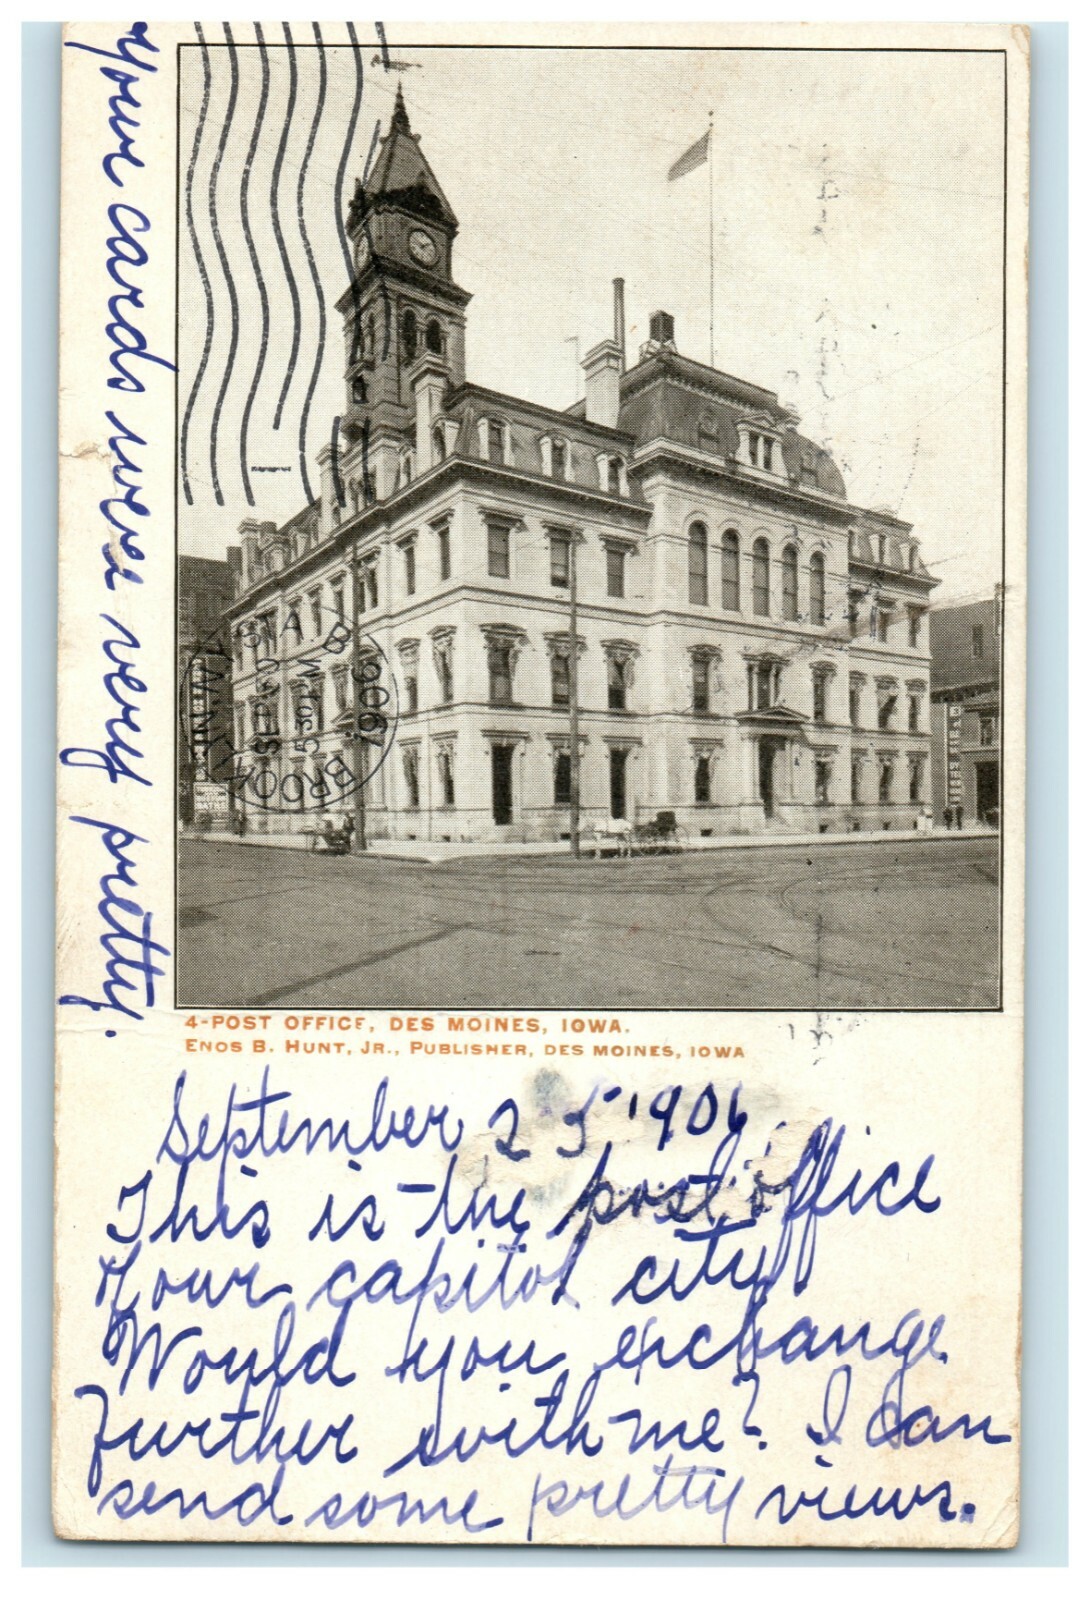 Your cards were very pretty.
BROOKLYN, N.Y.
SEP 29
5-30 PM
1906
STA B
4-POST OFFICE, DES MOINES, IOWA.
ENOS B. HUNT, JR., PUBLISHER, DES MOINES, IOWA
September 25 1906
This is the post office
of our capitol city
Would you exchange
further with me? I can
send some pretty views.